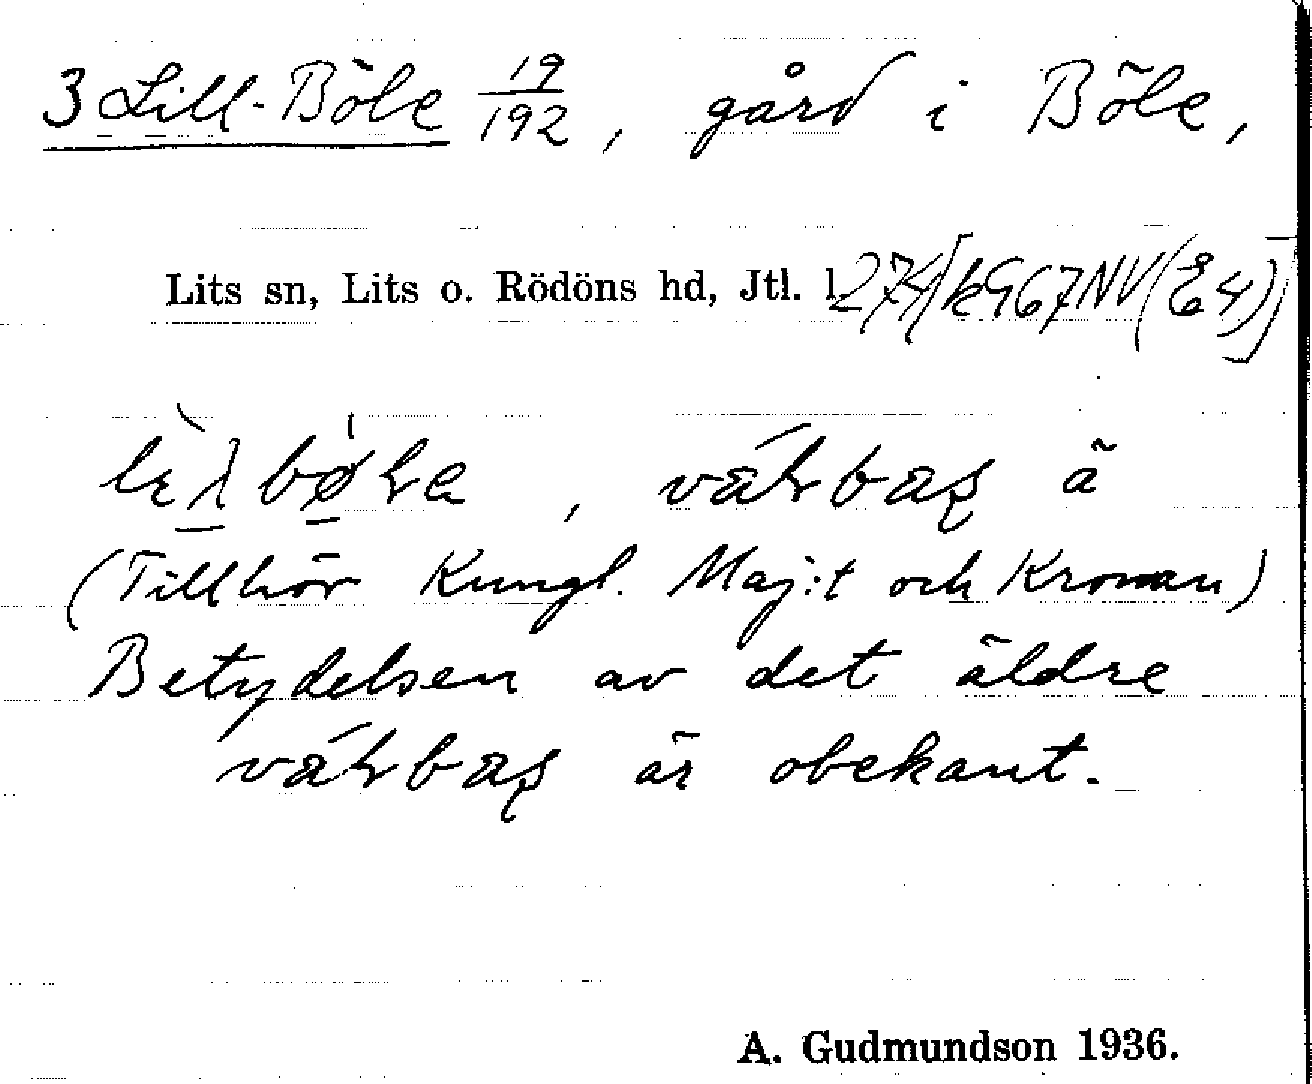 3 Lill-Böle 19/192, gård i Böle,
Lits sn, Lits o. Rödöns hd, Jtl. l. 274 [k967NV(Å4)]
(Tillhör Kungl. Maj:t och Kronan)
Betydelsen av det äldre
är obekant.
A. Gudmundson 1936.